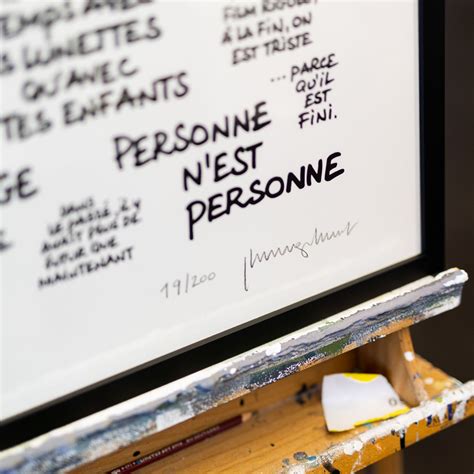 TEMPS AVEC
LUNETTES
QU'AVEC
TES ENFANTS
FILM RIGOLO,
À LA FIN, ON
EST TRISTE
...PARCE
QU'IL
EST
FINI.
PERSONNE
N'EST
PERSONNE
DANS
LE PASSÉ, IL Y
AVAIT PLUS DE
FUTUR QUE
MAINTENANT
19/200